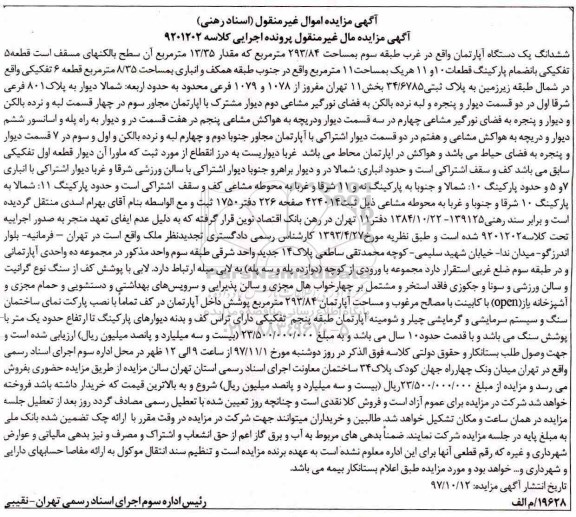 آگهی مزایده اموال غیرمنقول (اسناد رهنی)
آگهی مزایده مال غیرمنقول پرونده اجرایی کلاسه ۹۲۰۱۲۰۲
ششدانگ یک دستگاه آپارتمان واقع در غرب طبقه سوم بمساحت ۲۹۳/۸۴ مترمربع که مقدار ۱۳/۳۵ مترمربع آن سطح بالکنهای مسقف است قطعه۵
تفکیکی بانضمام پارکینگ قطعات۱۰و ۱۱ هریک بمساحت ۱۱ مترمربع واقع در جنوب طبقه همکف و انباری بمساحت ۸/۳۵ مترمربع قطعه ۶ تفکیکی واقع
در شمال طبقه زیرزمین به پلاک ثبتی ۳۴/۶۷۸۵ بخش۱۱ تهران مفروز از ۱۰۷۸ و ۱۰۷۹ فرعی محدود به حدود اربعه: شمالا دیوار به پلاک۸۰۱ فرعی
شرقا اول در دو قسمت دیوار و پنجره و لبه نرده بالکن به فضای نورگیر مشاعی دوم دیوار مشترک با آپارتمان مجاور سوم در چهار قسمت لبه و نرده بالکن
و دیوار و پنجره به فضای نورگیر مشاعی چهارم در سه قسمت دیوار ودریچه به هواکش مشاعی پنجم در هفت قسمت در و دیوار به راه پله و آسانسور ششم
دیوار و دریچه به هواکش مشاعی و هفتم در دو قسمت دیوار اشتراکی با آپارتمان مجاور جنوبا دوم و چهارم لبه و نرده بالکن و اول و سوم در ۷ قسمت دیوار
و پنجره به فضای حیاط می باشد و هواکش در آپارتمان محاط می باشد غربا دیواریست به درز انقطاع از مورد ثبت که ماورا آن دیوار قطعه اول تفکیکی
سابق می باشد کف و سقف اشتراکی است و حدود انباری: شمالا در و دیوار براهرو جنوبا دیوار اشتراکی با سالن ورزشی شرقا و غربا دیوار اشتراکی با انباری
۷و ۵ و حدود پارکینگ ۱۰: شمالا و جنوبا به پارکینگ ۹ و ۱۱ شرقا و غربا به محوطه مشاعی کف و سقف اشتراکی است و حدود پارکینگ ۱۱: شمالا به
پارکینگ ۱۰ شرقا و جنوبا و غربا به محوطه مشاعی ذیل ثبت۴۲۴۰۱۴ صفحه ۲۲۶ دفتر ۱۷۵۰ ثبت و مع الواسطه بنام آقای بهرام اسدی منتقل گردیده
است و برابر سند رهنی۱۳۹۱۲۵-۱۳۸۴/۱۰/۲۲ دفتر۱۱ تهران در رهن بانک اقتصاد نوین قرار گرفته که به دلیل عدم ایفای تعهد منجر به صدور اجراییه
تحت کلاسه۹۲۰۱۲۰۲ شده است و طبق نظریه مورخ۱۳۹۳/۴/۲۷ کارشناس رسمی دادگستری تجدیدنظر ملک واقع است در تهران – فرمانیه- بلوار
اندرزگو- میدان ندا- خیابان شهید سلیمی- کوچه محمدتقی ساطعی پلاک۱۴ جدید واحد شرقی طبقه سوم واحد مذکور در مجموعه ده واحدی آپارتمانی
و در طبقه سوم ضلع غربی استقرار دارد مجموعه با ورودی از کوچه (دوازده پله و سه پله) به لابی مبله ارتباط دارد. لابی با پوشش کف از سنگ نوع گرانیت
و سالن ورزشی و سونا و جکوزی فاقد استخر و مشتمل بر چهارخواب هال مجزی و سالن پذیرایی و سرویس‌های بهداشتی و دستشویی و حمام مجزی و
آشپزخانه باز(open) با کابینت با مصالح مرغوب و مساحت آپارتمان ۲۹۳/۸۴ مترمربع پوشش داخل آپارتمان در کف تماماً با نصب پارکت نمای ساختمان
سنگ و سیستم سرمایشی و گرمایشی چیلر و شومینه آپارتمان طبقه پنجم تفکیکی دارای تراس کف و بدنه دیوارهای پارکینگ تا ارتفاع حدود یک متر با
پوشش سنگ می باشد و با قدمت حدود۱۰ سال می باشد و به مبلغ ۲۳/۵۰۰/۰۰۰/۰۰۰ (بیست و سه میلیارد و پانصد میلیون ریال) ارزیابی شده است و
جهت وصول طلب بستانکار و حقوق دولتی کلاسه فوق الذکر در روز دوشنبه مورخ ۹۷/۱۱/۱ از ساعت ۹ الی ۱۲ ظهر در محل اداره سوم اجرای اسناد رسمی
واقع در تهران میدان ونک چهارراه جهان کودک پلاک۳۴ ساختمان معاونت اجرای اسناد رسمی استان تهران سالن مزایده از طریق مزایده حضوری بفروش
می رسد و مزایده از مبلغ ۲۳/۵۰۰/۰۰۰/۰۰۰ریال (بیست و سه میلیارد و پانصد میلیون ریال) شروع و به بالاترین قیمت که خریدار داشته باشد فروخته
خواهد شد شرکت در مزایده برای عموم آزاد است و فروش کلا نقدی است و چنانچه روز تعیین شده با تعطیل رسمی مصادف گردد روز بعد از تعطیل جلسه
مزایده در همان ساعت و مکان تشکیل خواهد شد. طالبین و خریداران میتوانند جهت شرکت در مزایده در وقت مقرر با ارائه چک تضمین شده بانک ملی
به مبلغ پایه در جلسه مزایده شرکت نمایند. ضمناً بدهی های مربوط به آب و برق گاز اعم از حق انشعاب و اشتراک و مصرف و نیز بدهی مالیاتی و عوارض
شهرداری و غیره که رقم قطعی آنها برای این اداره معلوم نشده است به عهده برنده مزایده است و تنظیم سند انتقال موکول به ارائه مفاصا حسابهای دارایی
و شهرداری و... خواهد بود و مورد مزایده طبق اعلام بستانکار بیمه می باشد.
تاریخ انتشار آگهی مزایده: ۹۷/۱۰/۱۲
۱۹۶۲۸/م الف
رئیس اداره سوم اجرای اسناد رسمی تهران-نقیبی